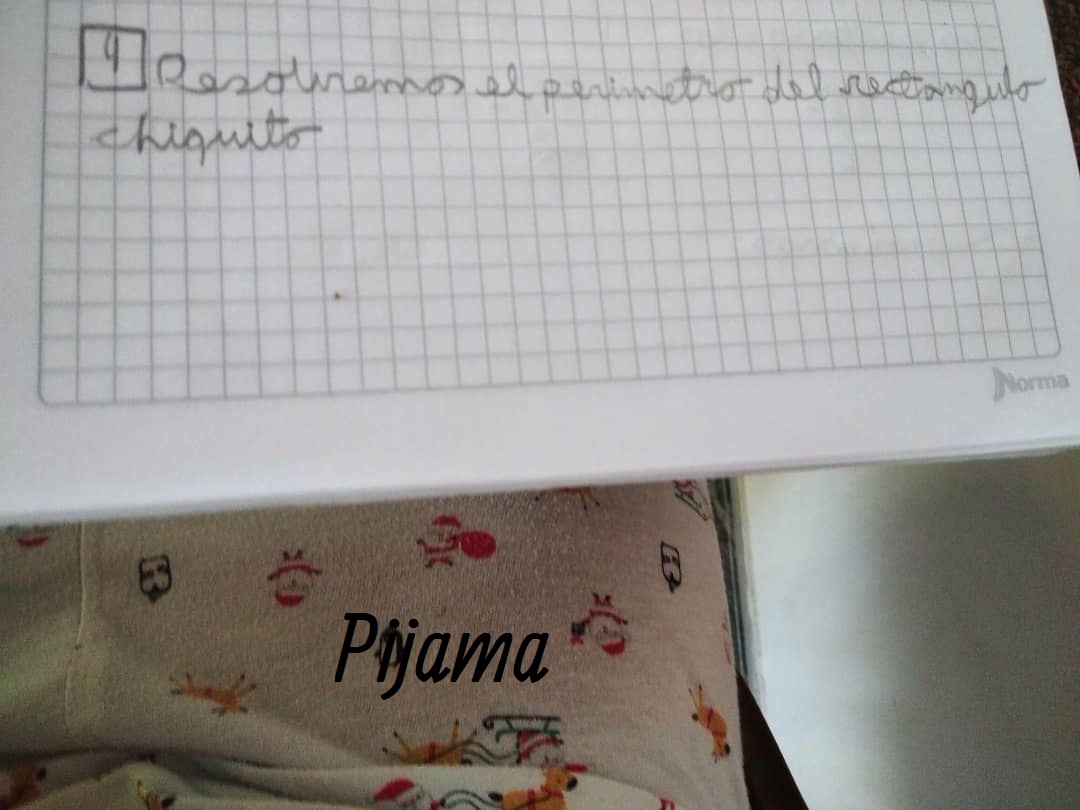 4 Resolvremos el perimetro del rectangulo
chiquito
Norma
Pijama